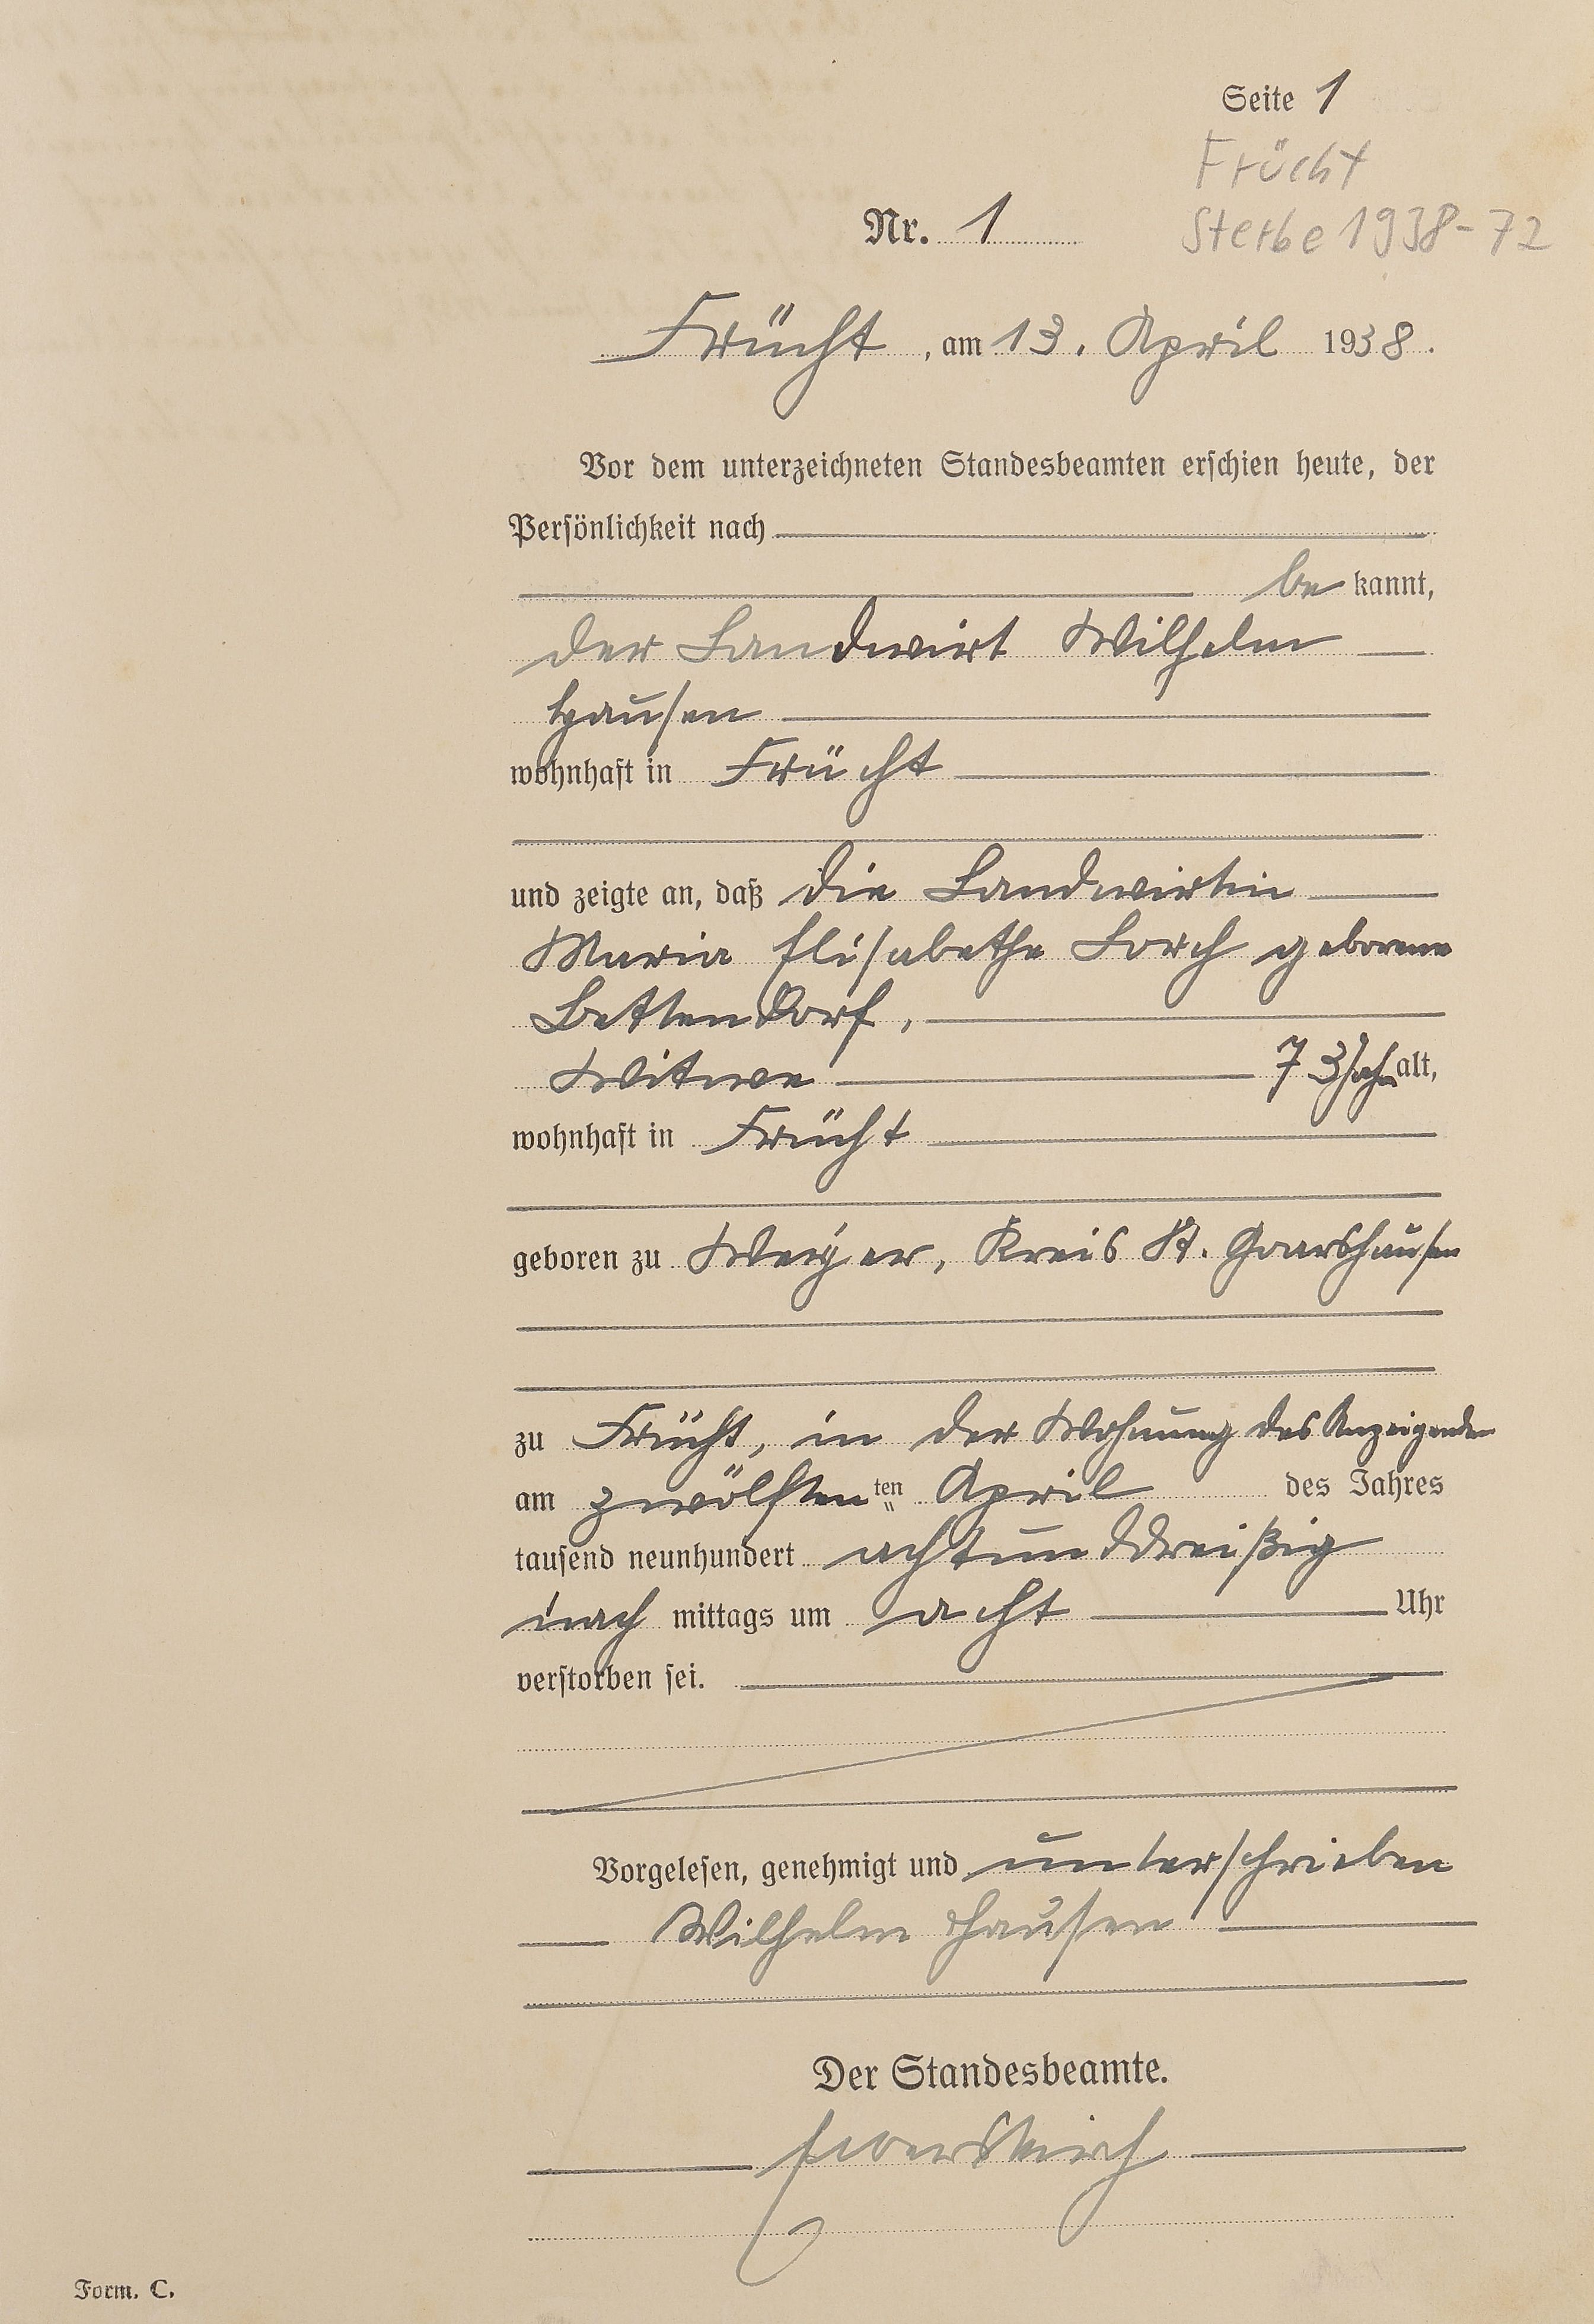 Seite 1
Frücht
Sterbe 1938-72
Nr. 1
Frücht, am 13. April 1938.
Vor dem unterzeichneten Standesbeamten erschien heute, der
Persönlichkeit nach
be kannt,
der Landwirt Wilhelm
Hausen
wohnhaft in Frücht
und zeigte an, daß die Landwirtin
Maria Elisabethe Lorch geborene
Bettendorf,
Witwe 73 Jahre alt,
wohnhaft in Frücht
geboren zu Weyer, Kreis St. Goarshausen
zu Frücht, in der Wohnung des Anzeigenden
am zwölften ten April des Jahres
tausend neunhundert achtunddreißig
nach mittags um acht Uhr
verstorben sei.
Vorgelesen, genehmigt und unterschrieben
Wilhelm Hausen
Der Standesbeamte.
Form. C.